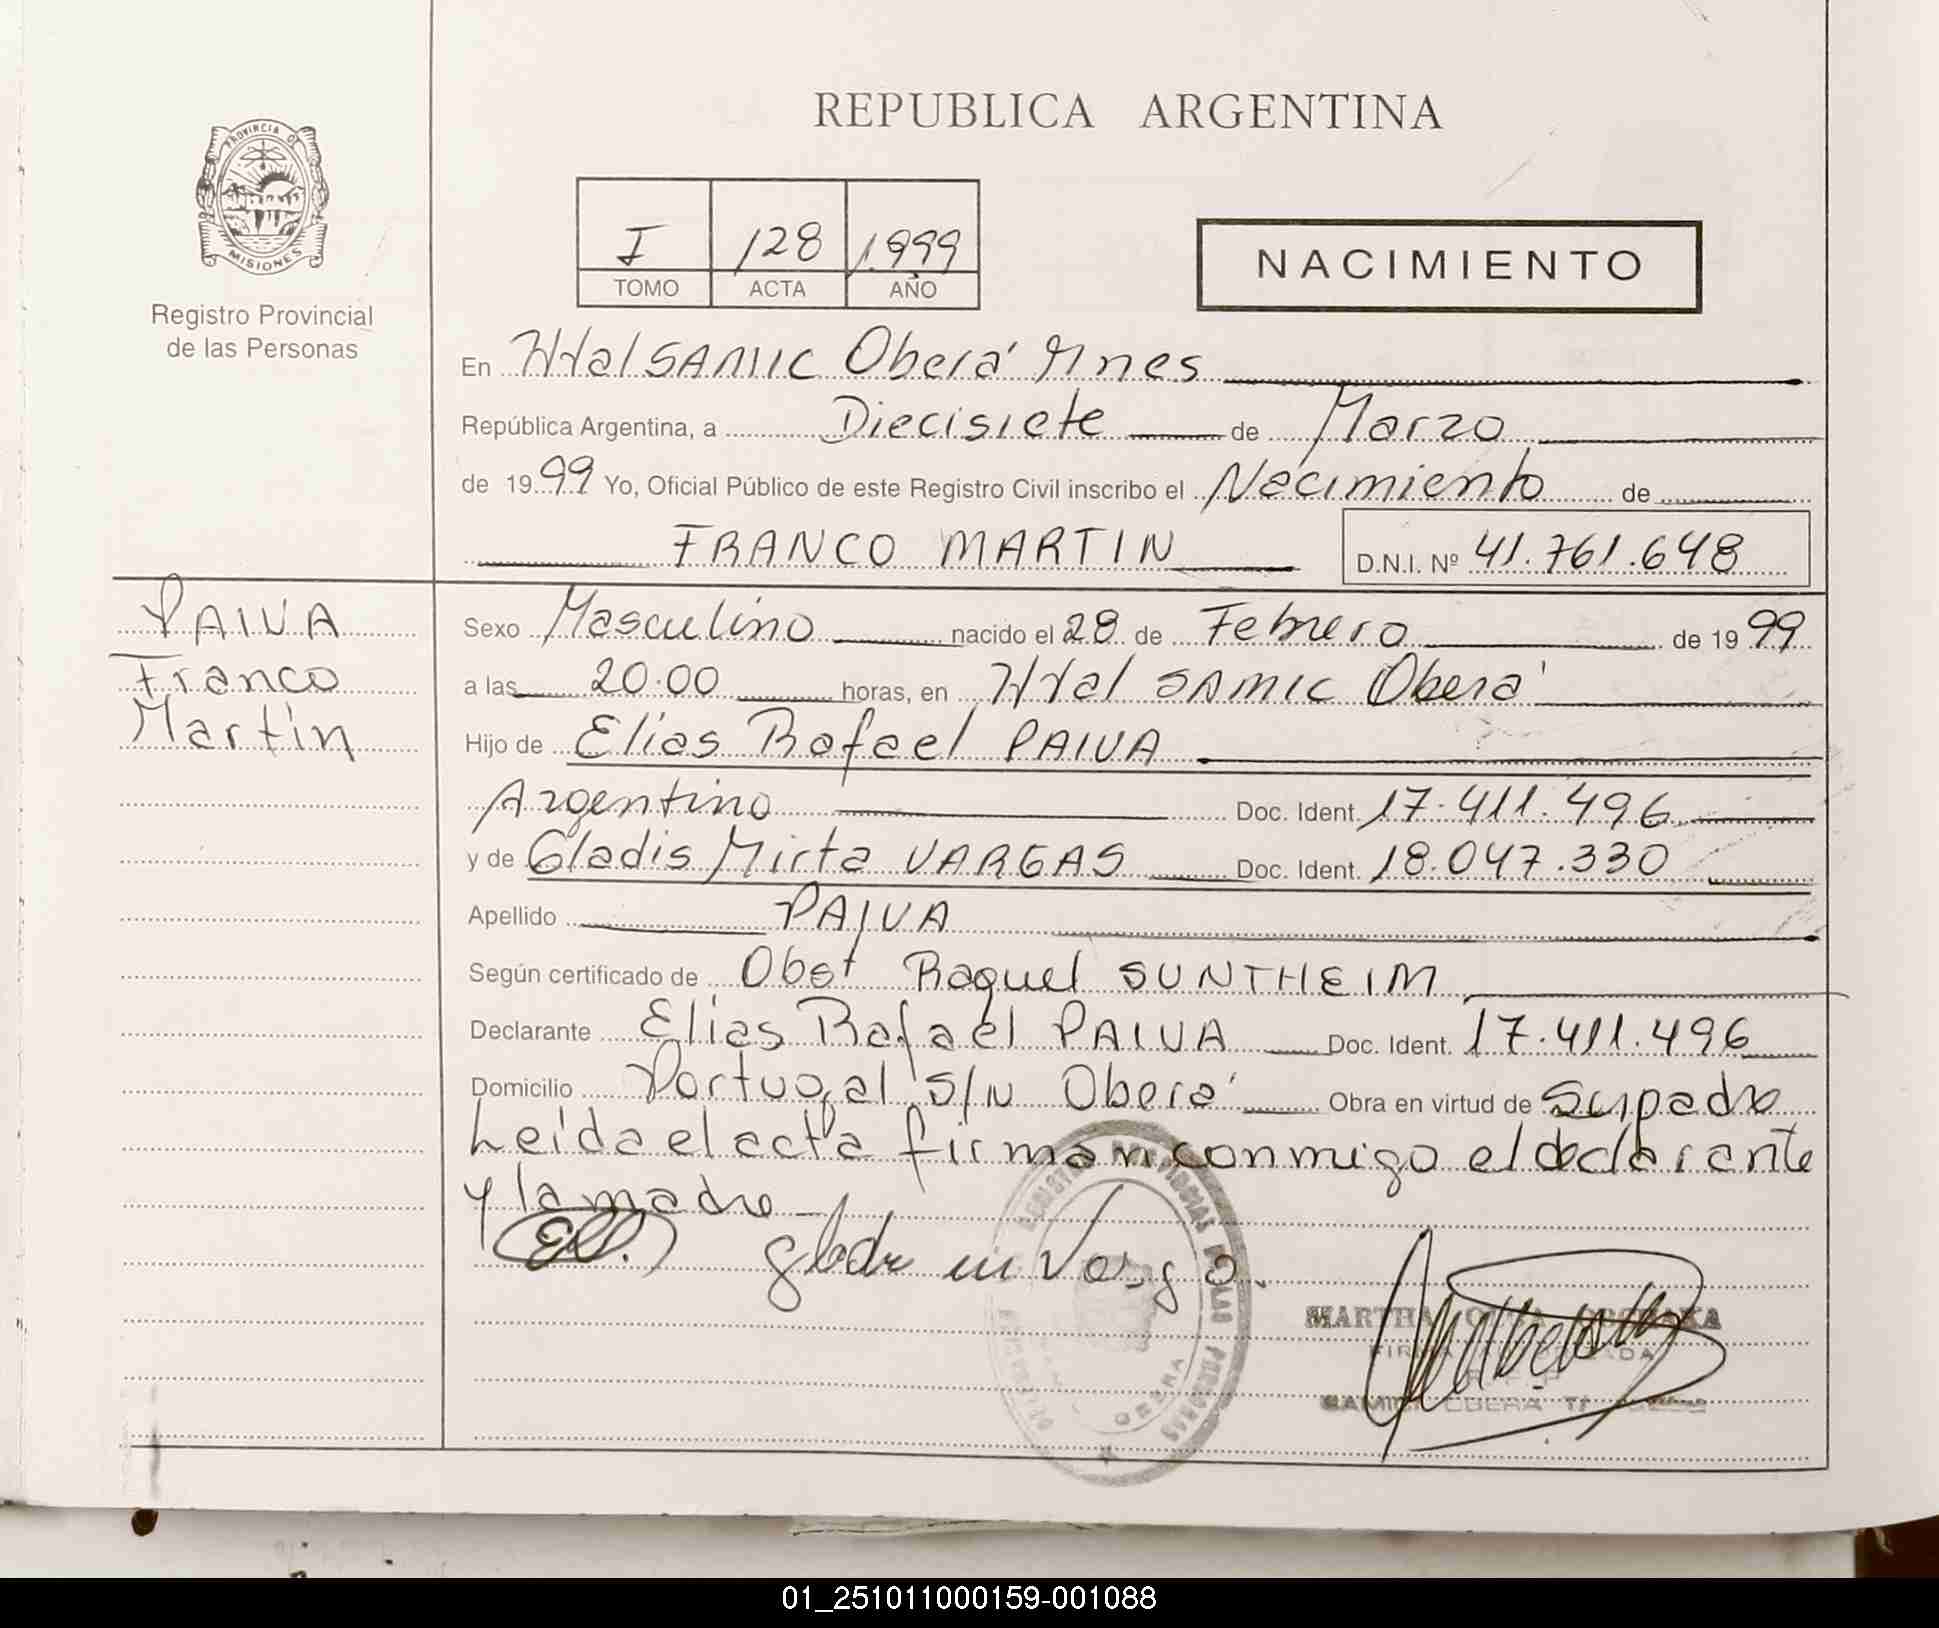 REPUBLICA ARGENTINA
PROVINCIA DE
MISIONES
Registro Provincial
de las Personas
I 128 1.999
TOMO ACTA AÑO
NACIMIENTO
En HtalSAMIC Oberá Mnes
República Argentina, a Diecisiete de Marzo
de 1999 Yo, Oficial Público de este Registro Civil inscribo el Nacimiento de
FRANCO MARTIN D.N.I. Nº 41.761.648
PAIVA
Franco
Martín
Sexo Masculino nacido el 28 de Febrero de 1999
a las 20.00 horas, en Htal SAMIC Oberá
Hijo de Elias Rafael PAIVA
Argentino Doc. Ident. 17.411.496
y de Gladis Mirta VARGAS Doc. Ident. 18.047.330
Apellido PAIVA
Según certificado de Obst Raquel SUNTHEIM
Declarante Elias Rafael PAIVA Doc. Ident. 17.411.496
Domicilio Portugal S/N Oberá Obra en virtud de Serpadre
Leída el acta firman conmigo el declarante
y la madre
MARTHA
FIRMA
OBERA
01_251011000159-001088